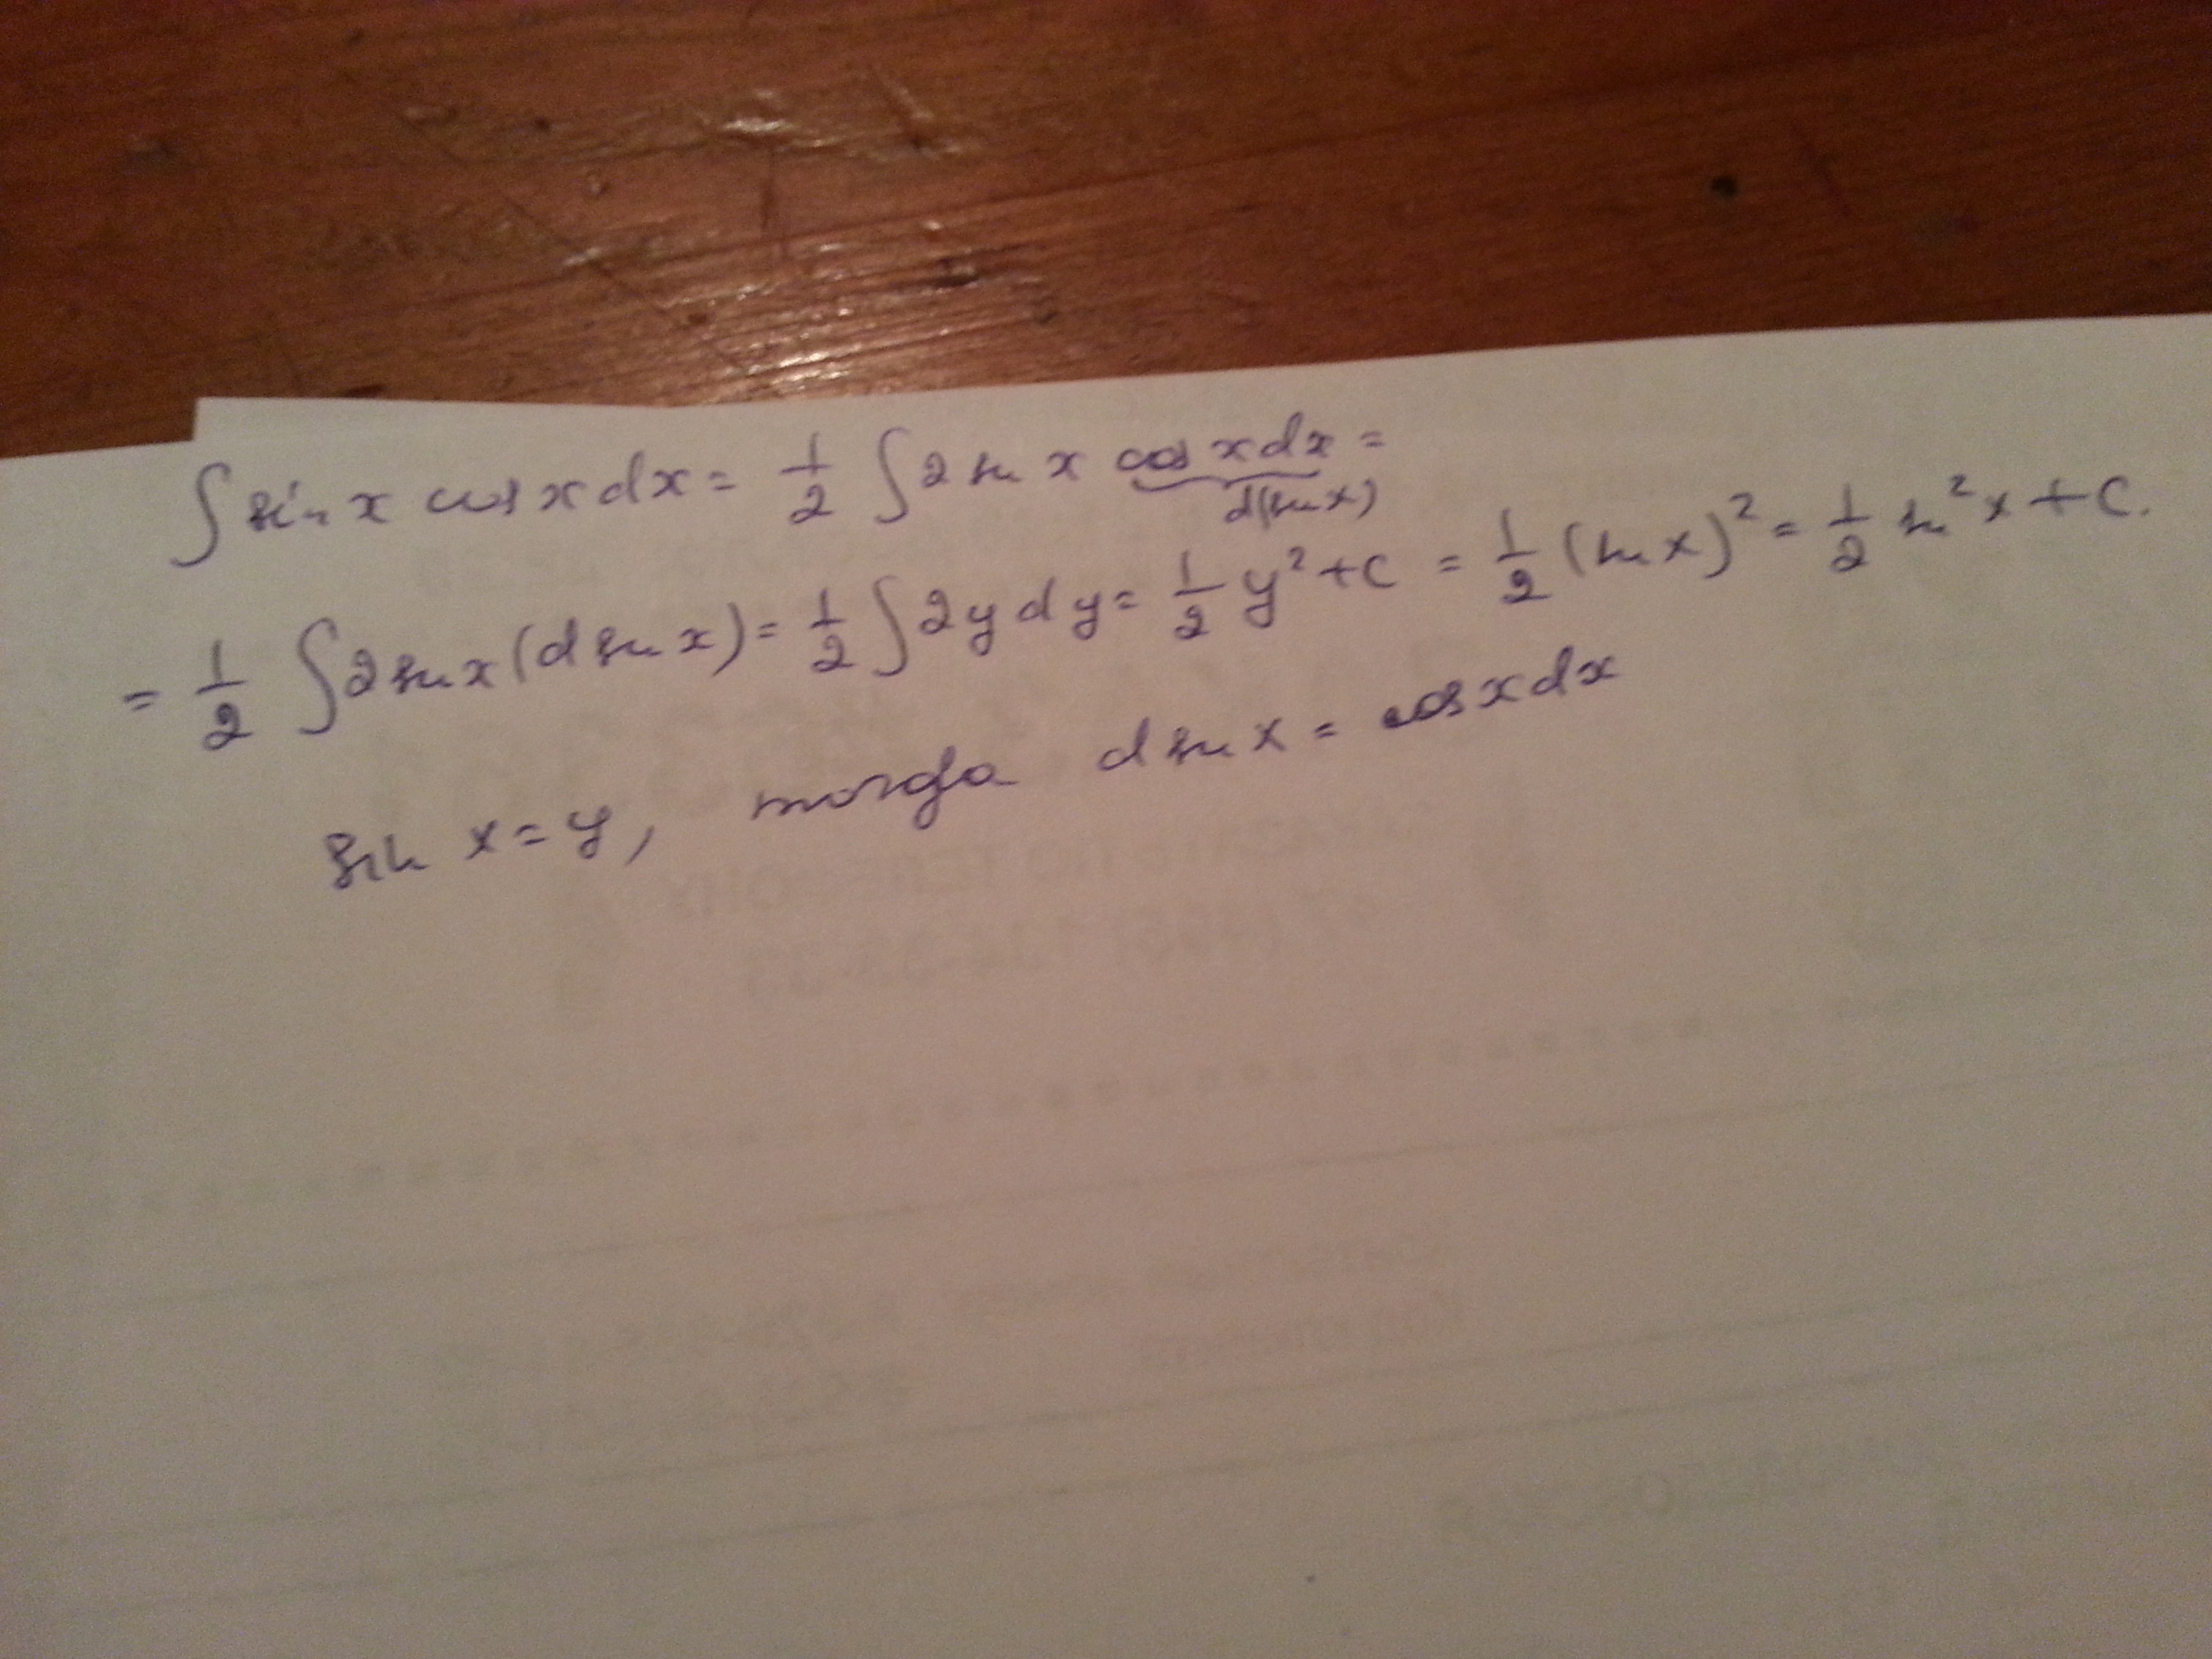 ∫ sin x cos x dx = 1/2 ∫ 2 sin x cos x dx =
d(sin x)
= 1/2 ∫ 2 sin x (d sin x) = 1/2 ∫ 2y dy = 1/2 y² + C = 1/2 (sin x)² = 1/2 sin² x + C.
sin x = y, тогда d sin x = cos x dx